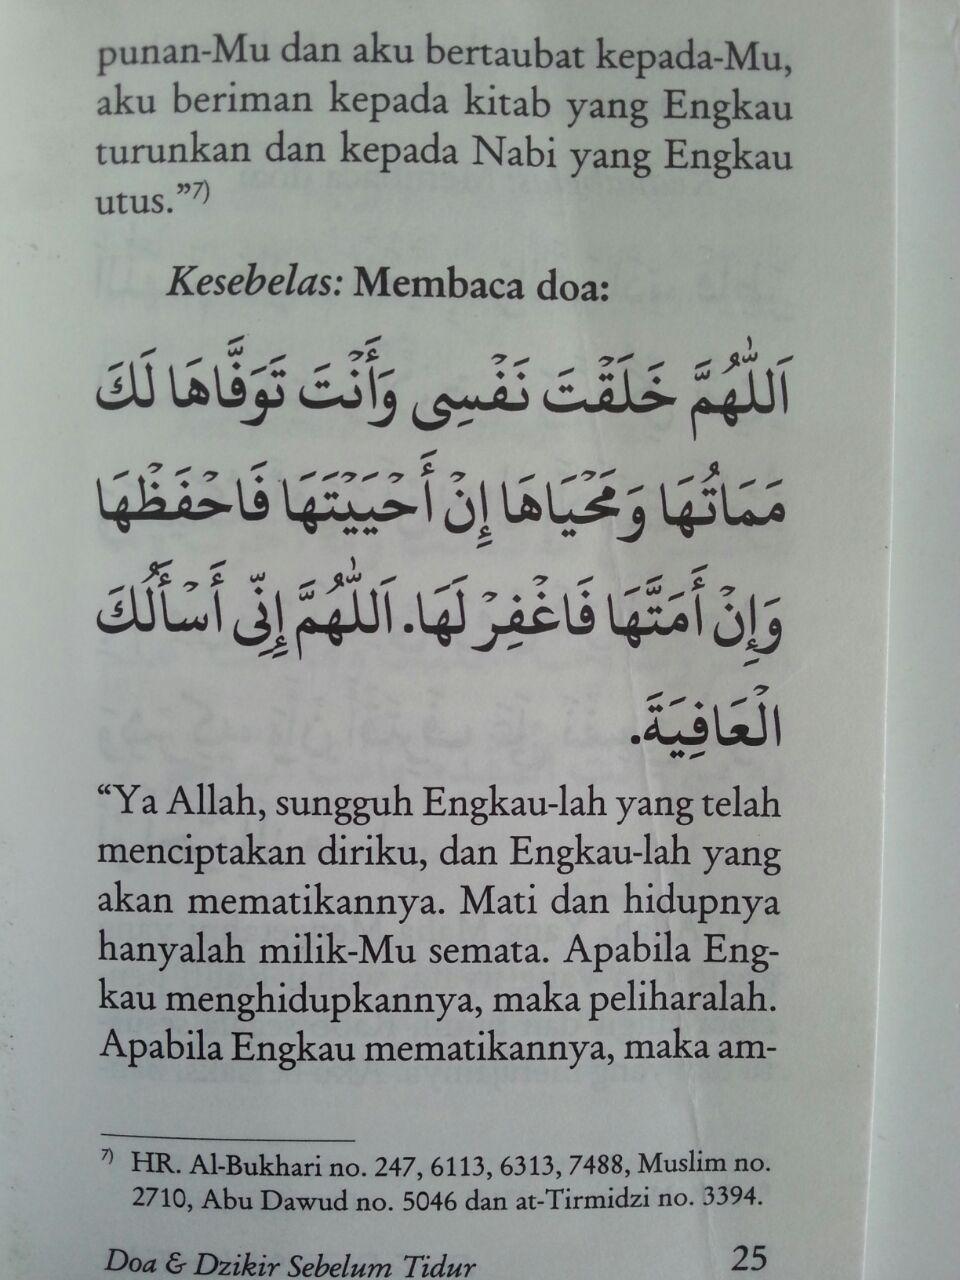 punan-Mu dan aku bertaubat kepada-Mu,
aku beriman kepada kitab yang Engkau
turunkan dan kepada Nabi yang Engkau
utus.”7)
Kesebelas: Membaca doa:
اَللّٰهُمَّ خَلَقْتَ نَفْسِى وَأَنْتَ تَوَفَّاهَا لَكَ
مَمَاتُهَا وَمَحْيَاهَا إِنْ أَحْيَيْتَهَا فَاحْفَظْهَا
وَإِنْ أَمَتَّهَا فَاغْفِرْ لَهَا. اَللّٰهُمَّ إِنِّى أَسْأَلُكَ
الْعَافِيَةَ.
“Ya Allah, sungguh Engkau-lah yang telah
menciptakan diriku, dan Engkau-lah yang
akan mematikannya. Mati dan hidupnya
hanyalah milik-Mu semata. Apabila Eng-
kau menghidupkannya, maka peliharalah.
Apabila Engkau mematikannya, maka am-
7) HR. Al-Bukhari no. 247, 6113, 6313, 7488, Muslim no.
2710, Abu Dawud no. 5046 dan at-Tirmidzi no. 3394.
Doa & Dzikir Sebelum Tidur 25